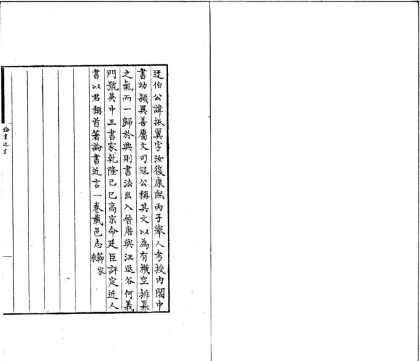 迂伯公諱振翼字汝復康熙丙子舉人考授內閣中
書幼穎異善屬文司寇公稱其文以為有橫空排奡
之氣而一歸於典則書法出入晉唐與汪退谷何義
門號吳中三書家乾隆己巳高宗命廷臣評定近人
書以君稱首著論書近言一卷載邑志家
論書近言